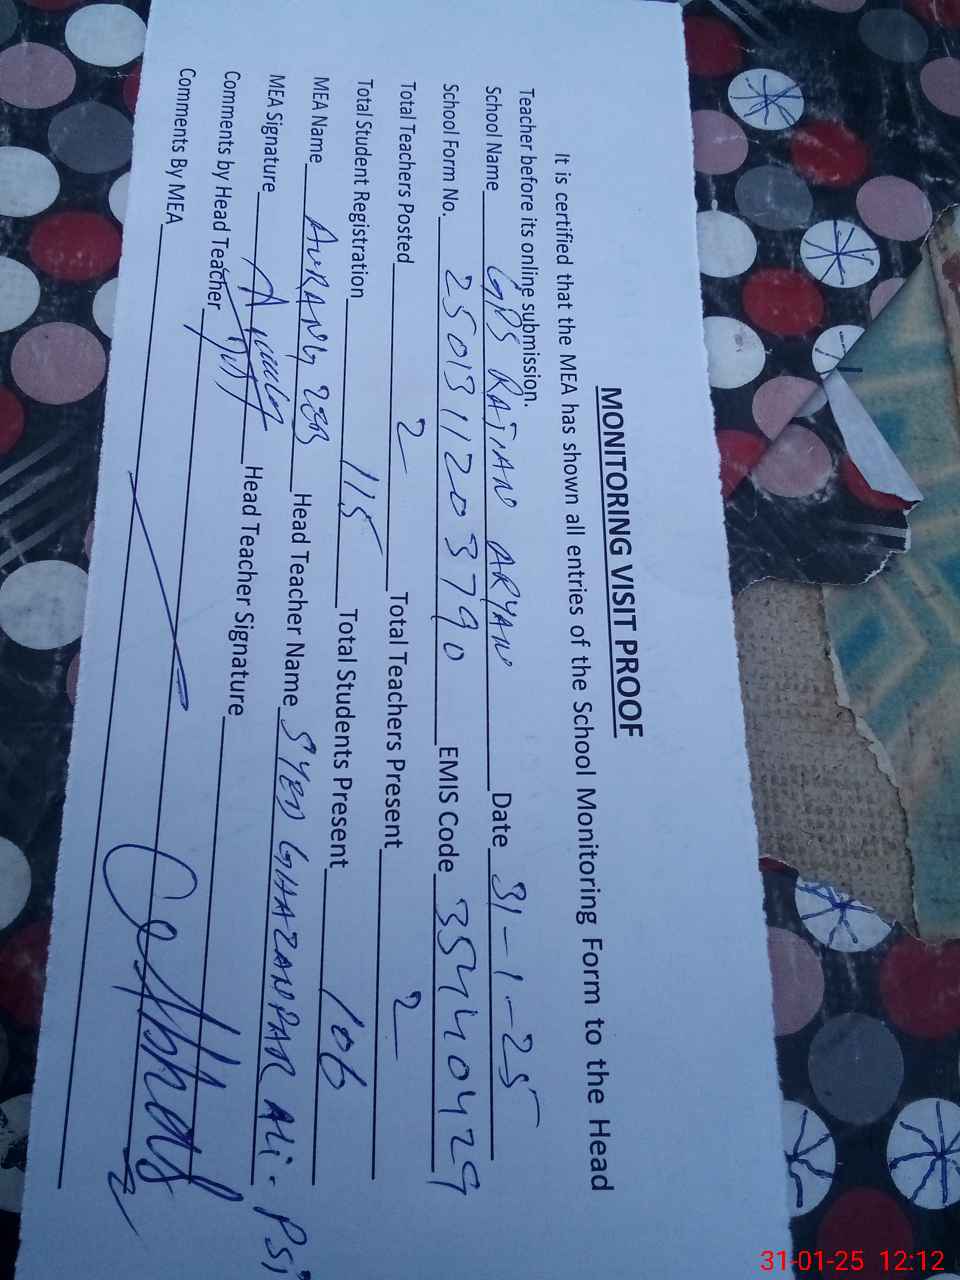 MONITORING VISIT PROOF
It is certified that the MEA has shown all entries of the School Monitoring Form to the Head
Teacher before its online submission.
School Name GPS RATIAN ARYAN Date 31-1-25
School Form No. 2501311203790 EMIS Code 35440429
Total Teachers Posted 2 Total Teachers Present 2
Total Student Registration 115 Total Students Present 106
MEA Name AURANG ZEB Head Teacher Name SYED GHAZANFAR ALi - PSi
MEA Signature Head Teacher Signature
Comments by Head Teacher
Comments By MEA
31-01-25 12:12